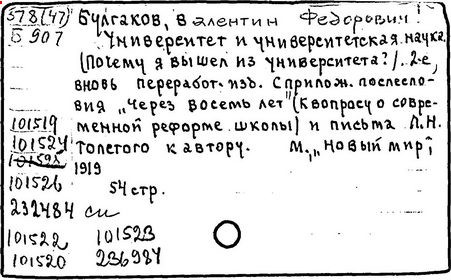 378(47) Булгаков, Валентин Федорович.
Б 907 Университет и университетская наука.
(Почему я вышел из университета?). 2-е,
вновь переработ. изд. С прилож. послесло-
вия "Через восемь лет" (К вопросу о совре-
101519 менной реформе школы) и письма Л.Н.
101524 Толстого к автору. М., "Новый мир",
101525 1919
101526 54 стр.
232484 си
101522 101523
101520 236987